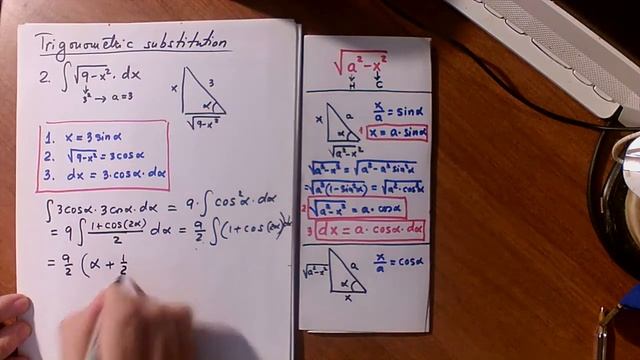 Trigonometric substitution
2. ∫√9-x² · dx
3² → a=3
x 3 α √9-x²
1. x = 3 sinα
2. √9-x² = 3cosα
3. dx = 3·cosα·dα
∫3cosα·3cosα·dα = 9·∫cos²α·dα
= 9∫ 1+cos(2α)/2 dα = 9/2 ∫(1+cos(2α))dα
= 9/2 (α + 1/2
√a²-x²
H C
x a α √a²-x²
x/a = sinα
1 x = a·sinα
√a²-x² = √a²-a²sin²α
= √a²(1-sin²α) = √a²·cos²α
2 √a²-x² = a·cosα
3 dx = a·cosα·dα
√a²-x² a α x
x/a = cosα